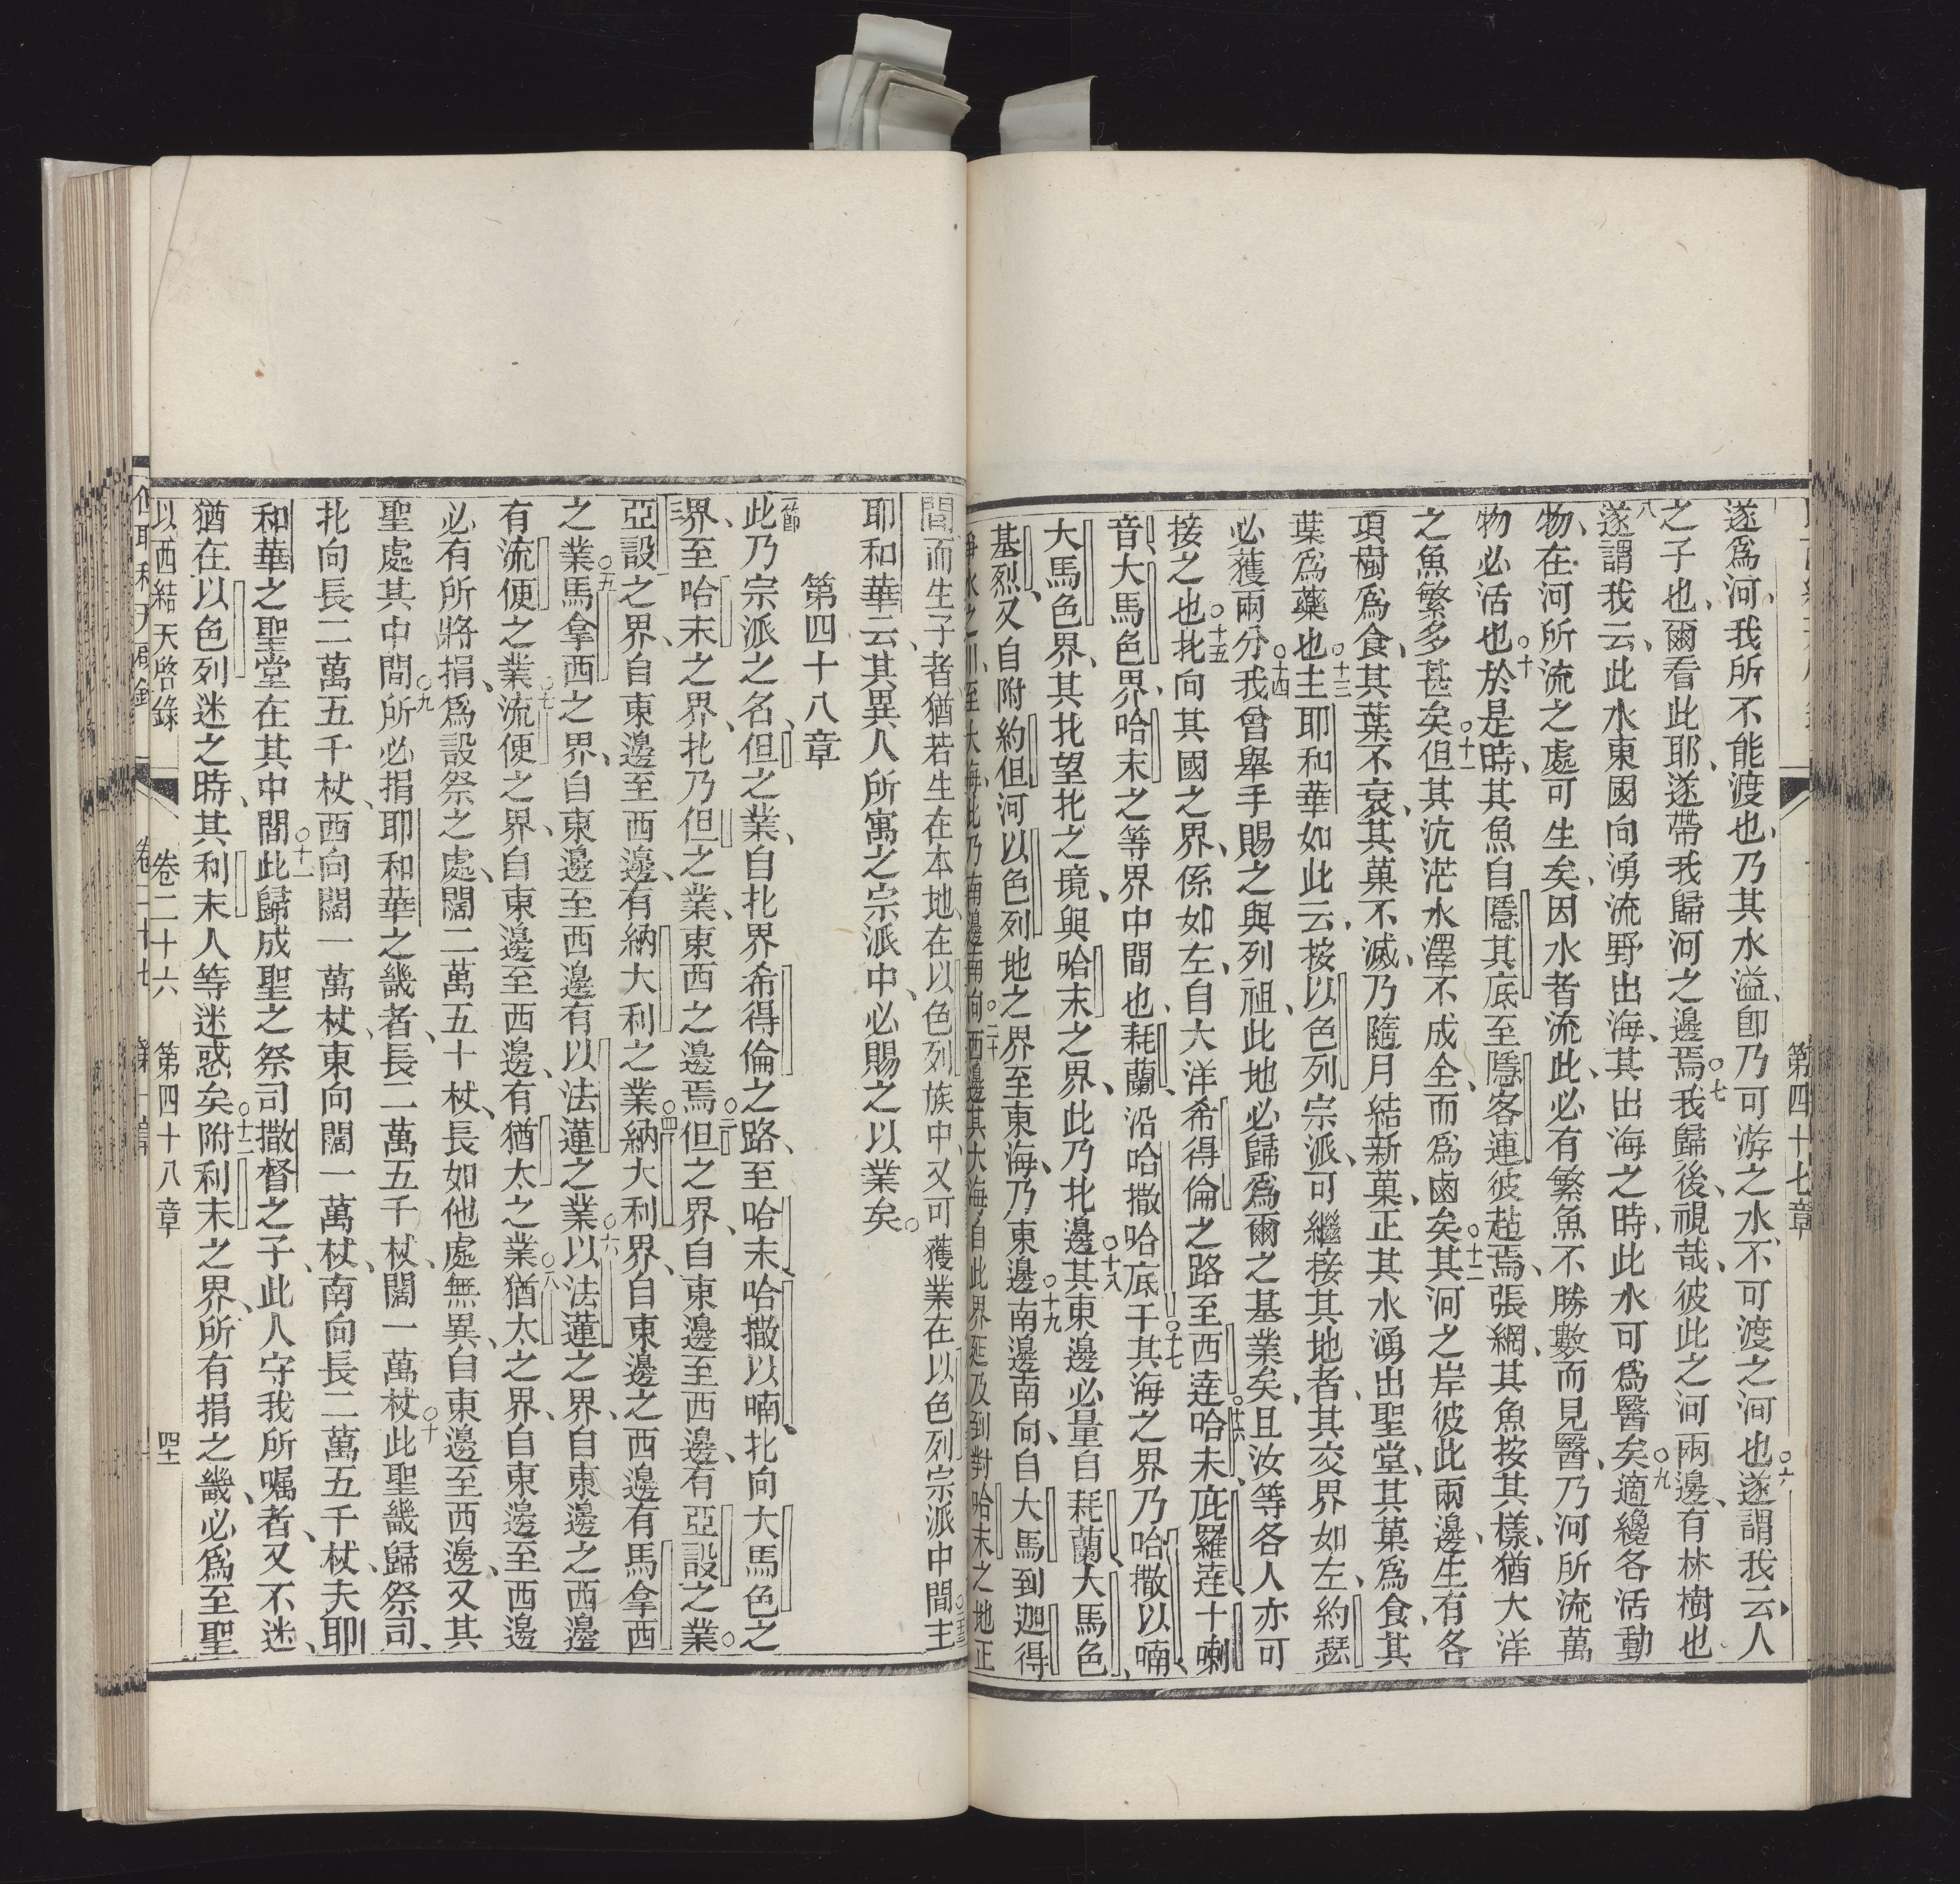 第四十七章
遂爲河、我所不能渡也、乃其水溢、卽乃可游之水、不可渡之河也○六遂謂我云、人
之子也、爾看此耶、遂帶我歸河之邊焉○七我歸後、視哉、彼此之河兩邊、有林樹也○
八遂謂我云、此水東國向湧流野出海、其出海之時、此水可爲醫矣○九適纔各活動
物、在河所流之處可生矣、因水者流此、必有繁魚不勝數而見醫、乃河所流萬
物必活也○十於是時、其魚自隱其底至隱客連彼趕焉、張網、其魚按其樣、猶大洋
之魚繁多甚矣○十一但其沆茫水澤不成全、而爲鹵矣○十二其河之岸彼此兩邊、生有各
項樹爲食、其葉不衰、其菓不滅、乃隨月結新菓、正其水湧出聖堂、其菓爲食、其
葉爲藥也○十三主耶和華如此云、按以色列宗派、可繼接其地者、其交界如左、約瑟
必獲兩分○十四我曾舉手賜之與列祖、此地必歸爲爾之基業矣、且汝等各人亦可
接之也○十五北向其國之界、係如左、自大洋希得倫之路至西達○十六哈未、庇羅達、十喇
音、大馬色界、哈末之等界中間也、耗蘭、沿哈撒哈底○十七于其海之界乃哈撒以喃、
大馬色界、其北望北之境、與哈末之界、此乃北邊○十八其東邊必量自耗蘭、大馬色、
基烈、又自附約但河以色列地之界至東海、乃東邊○十九南邊南向、自大馬到迦得
爭水之川、至大海、此乃南邊南向○二十西邊其大海、自此界延及到對哈末之地正
間而生子者、猶若生在本地、在以色列族中、又可獲業在以色列宗派中間○二十三主
耶和華云、其異人所寓之宗派中、必賜之以業矣○
第四十八章
一節此乃宗派之名、但之業、自北界希得倫之路、至哈末、哈撒以喃、北向大馬色之
界、至哈末之界、北乃但之業、東西之邊焉○二但之界、自東邊至西邊、有亞設之業○
三亞設之界、自東邊至西邊、有納大利之業○四納大利界、自東邊之西邊有馬拿西
之業○五馬拿西之界、自東邊至西邊有以法蓮之業○六以法蓮之界、自東邊之西邊
有流便之業○七流便之界、自東邊至西邊、有猶太之業○八猶太之界、自東邊至西邊
必有所將捐、爲設祭之處、闊二萬五十杖、長如他處無異、自東邊至西邊、又其
聖處其中間○九所必捐耶和華之畿者、長二萬五千杖、闊一萬杖○十此聖畿歸祭司、
北向長二萬五千杖、西向闊一萬杖、東向闊一萬杖、南向長二萬五千杖、夫耶
和華之聖堂在其中間○十一此歸成聖之祭司撒督之子、此人守我所囑者、又不迷、
猶在以色列迷之時、其利未人等迷惑矣○十二附利末之界、所有捐之畿、必爲至聖
以西結天啓錄　卷二十六　第四十八章　四十